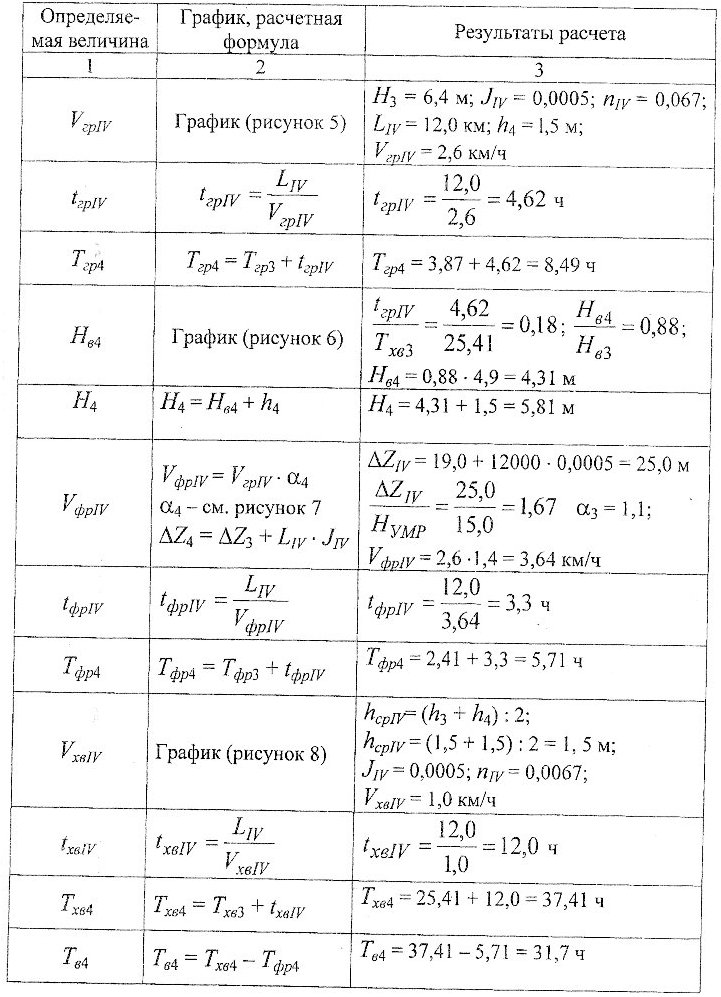 Определяе-
мая величина
График, расчетная
формула
Результаты расчета
1 2 3
V_грIV
График (рисунок 5)
H_3 = 6,4 м; J_IV = 0,0005; n_IV = 0,067;
L_IV = 12,0 км; h_4 = 1,5 м;
V_грIV = 2,6 км/ч
t_грIV
t_грIV = L_IV / V_грIV
t_грIV = 12,0 / 2,6 = 4,62 ч
T_гр4
T_гр4 = T_гр3 + t_грIV
T_гр4 = 3,87 + 4,62 = 8,49 ч
H_в4
График (рисунок 6)
t_грIV / T_хв3 = 4,62 / 25,41 = 0,18; H_в4 / H_в3 = 0,88;
H_в4 = 0,88 · 4,9 = 4,31 м
H_4
H_4 = H_в4 + h_4
H_4 = 4,31 + 1,5 = 5,81 м
V_фрIV
V_фрIV = V_грIV · α_4
α_4 – см. рисунок 7
ΔZ_4 = ΔZ_3 + L_IV · J_IV
ΔZ_IV = 19,0 + 12000 · 0,0005 = 25,0 м
ΔZ_IV / H_УМР = 25,0 / 15,0 = 1,67 α_3 = 1,1;
V_фрIV = 2,6 ·1,4 = 3,64 км/ч
t_фрIV
t_фрIV = L_IV / V_фрIV
t_фрIV = 12,0 / 3,64 = 3,3 ч
T_фр4
T_фр4 = T_фр3 + t_фрIV
T_фр4 = 2,41 + 3,3 = 5,71 ч
V_хвIV
График (рисунок 8)
h_срIV = (h_3 + h_4) : 2;
h_срIV = (1,5 + 1,5) : 2 = 1, 5 м;
J_IV = 0,0005; n_IV = 0,0067;
V_хвIV = 1,0 км/ч
t_хвIV
t_хвIV = L_IV / V_хвIV
t_хвIV = 12,0 / 1,0 = 12,0 ч
T_хв4
T_хв4 = T_хв3 + t_хвIV
T_хв4 = 25,41 + 12,0 = 37,41 ч
T_в4
T_в4 = T_хв4 – T_фр4
T_в4 = 37,41 – 5,71 = 31,7 ч